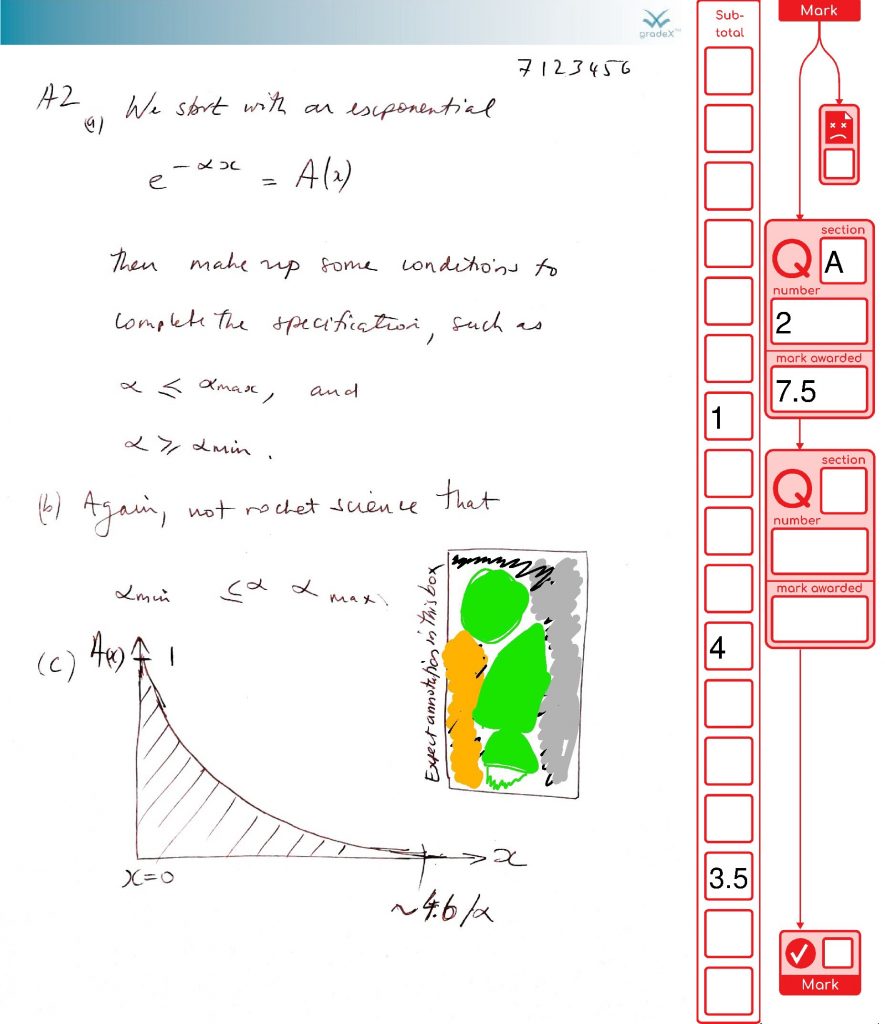 gradeX™
7123456
A2
(a) We start with an exponential
e^-αx = A(x)
Then make up some conditions to
complete the specification, such as
α ≤ αmax, and
α ≥ αmin.
(b) Again, not rocket science that
αmin ≤ α αmax.
Expect annotation in this box
(c) A(x) 1
x
x=0
~4.6/α
Sub-
total
1
4
3.5
Mark
section
Q A
number
2
mark awarded
7.5
section
Q
number
mark awarded
Mark